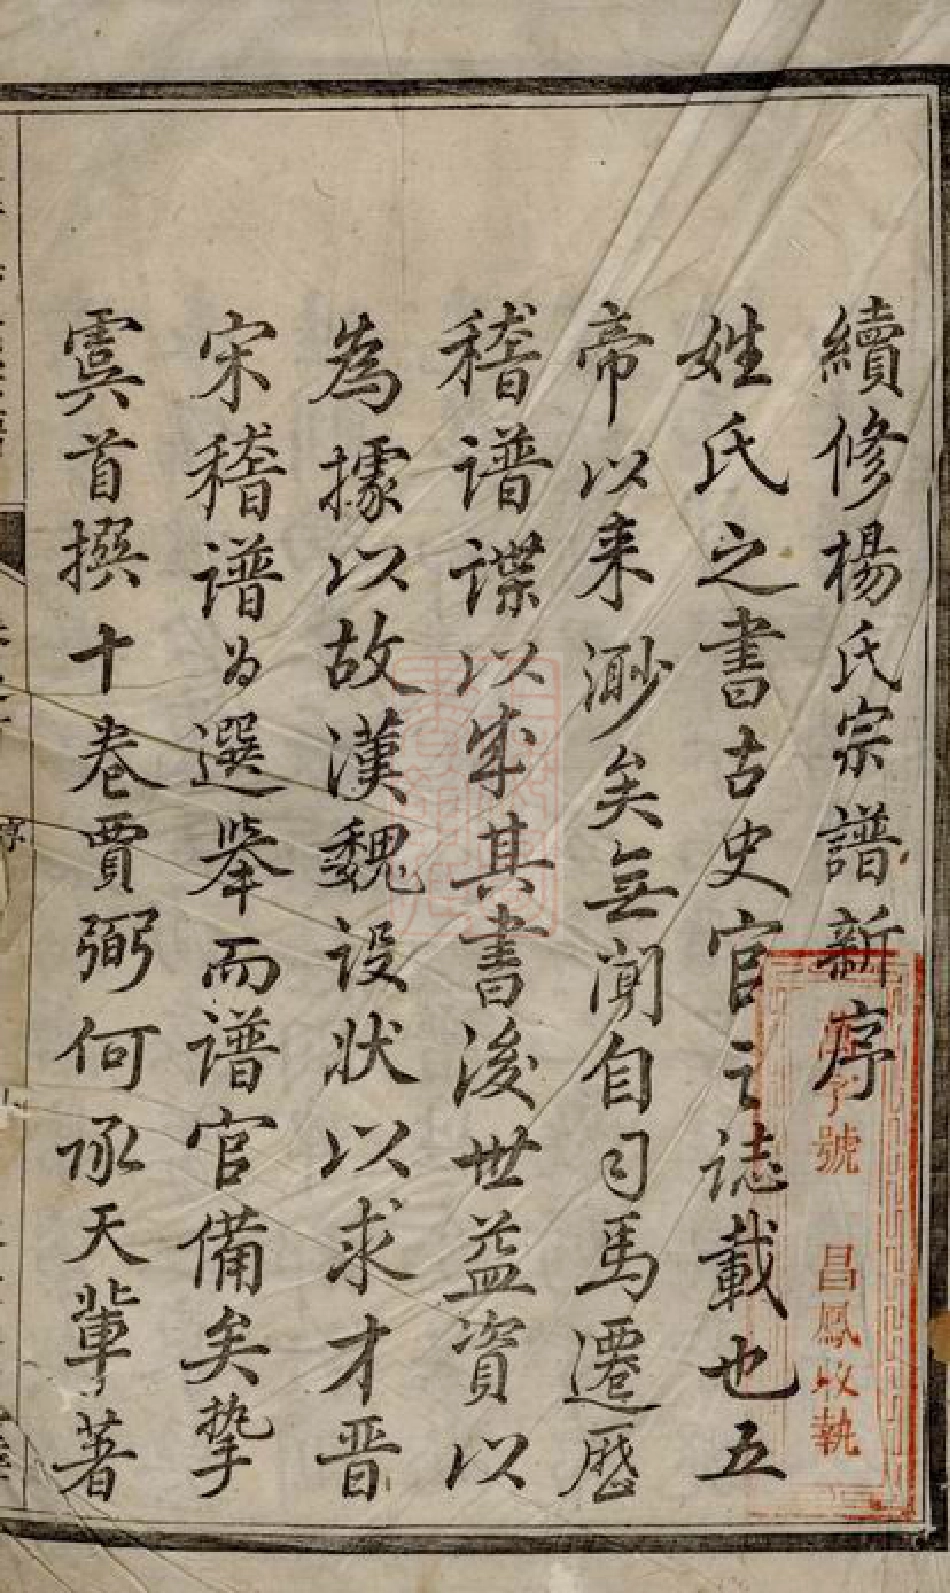 續修楊氏宗譜新序
姓氏之書古史官之誌載也五
帝以来渺矣無聞自司馬遷歷
稽譜諜以成其書後世益資以
為據以故漢魏設状以求才晋
宋稽譜为選舉而譜官備矣摯
虞首撰十卷賈弼何承天輩著
號 昌鳳收執